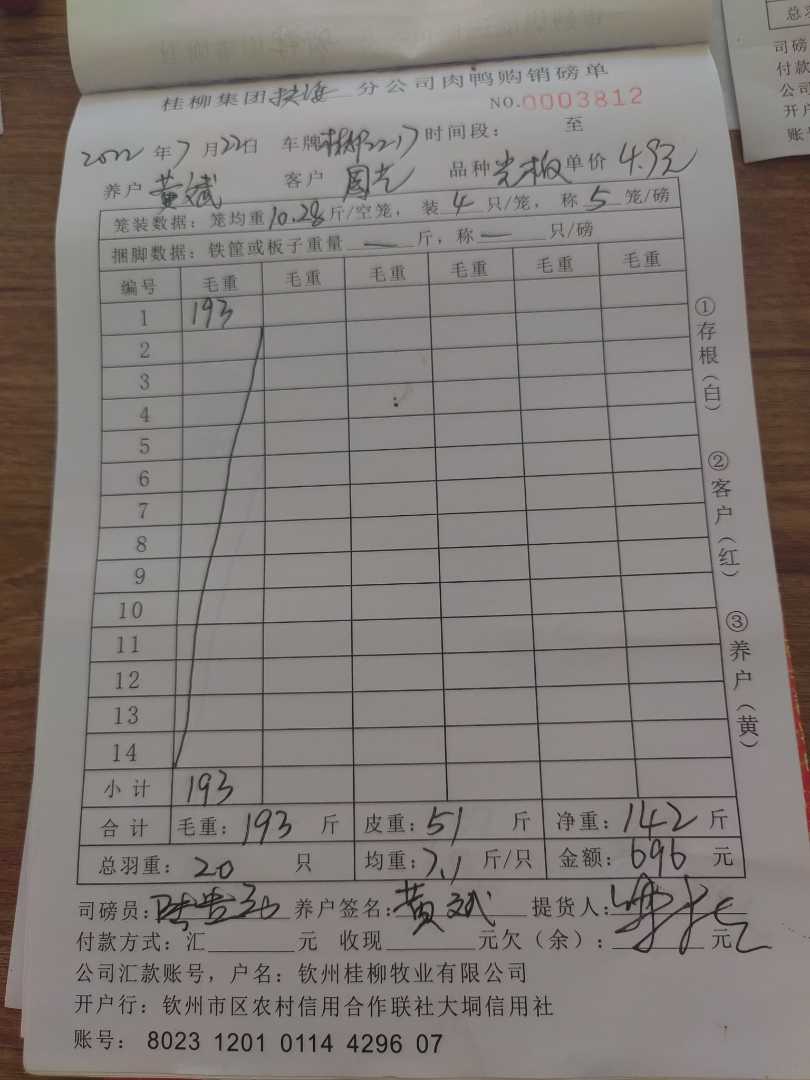 桂柳集团扶海分公司肉鸭购销磅单
NO.0003812
2022年7月22日 车牌桂柳2217时间段： 至
养户黄斌 客户周光 品种光板单价4.9元
笼装数据：笼均重10.28斤/空笼，装4只/笼，称5笼/磅
捆脚数据：铁筐或板子重量—斤，称—只/磅
编号 毛重 毛重 毛重 毛重 毛重 毛重
1 193
2
3
4
5
6
7
8
9
10
11
12
13
14
小计 193
合计 毛重：193斤 皮重：51斤 净重：142斤
总羽重：20只 均重：7.1斤/只 金额：696元
司磅员： 养户签名：黄斌 提货人：
付款方式：汇 元 收现 元欠（余）： 元
公司汇款账号，户名：钦州桂柳牧业有限公司
开户行：钦州市区农村信用合作联社大垌信用社
账号：8023 1201 0114 4296 07
①存根（白）
②客户（红）
③养户（黄）
总羽
司磅
付款
公司
开户
账号